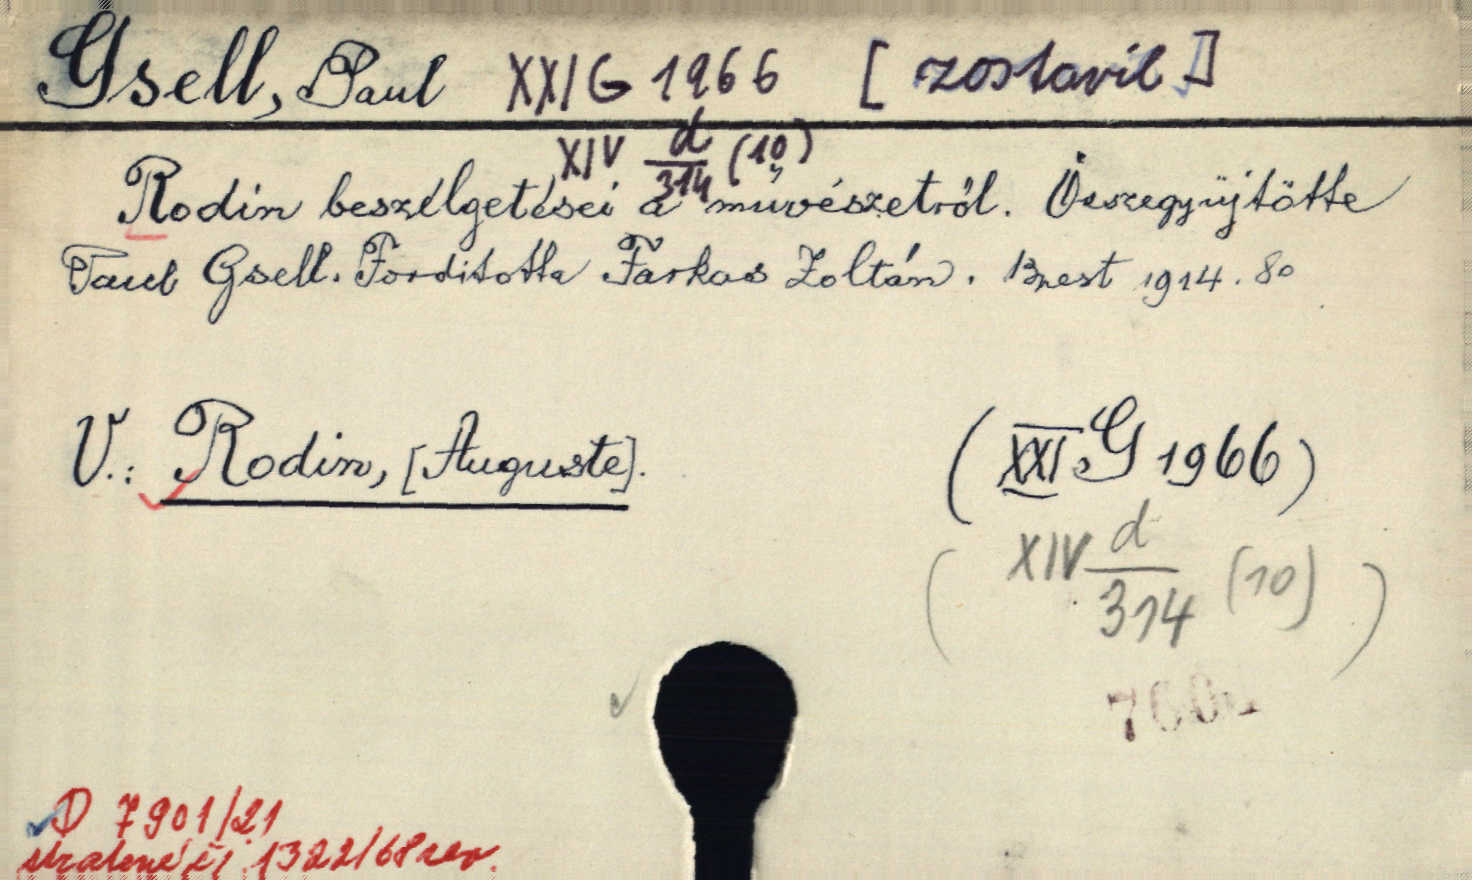 Gsell, Paul XXI G 1966 [zostavil]
XIV d/314 (10)
Rodin beszélgetései a művészetről. Összegyűjtötte
Paul Gsell. Fordította Farkas Zoltán. Bpest 1914. 80
V.: Rodin, [Auguste].
(XXI. G 1966)
(XIV d/314 (10))
D 7901/21
stratené čj. 1322/68 rev.